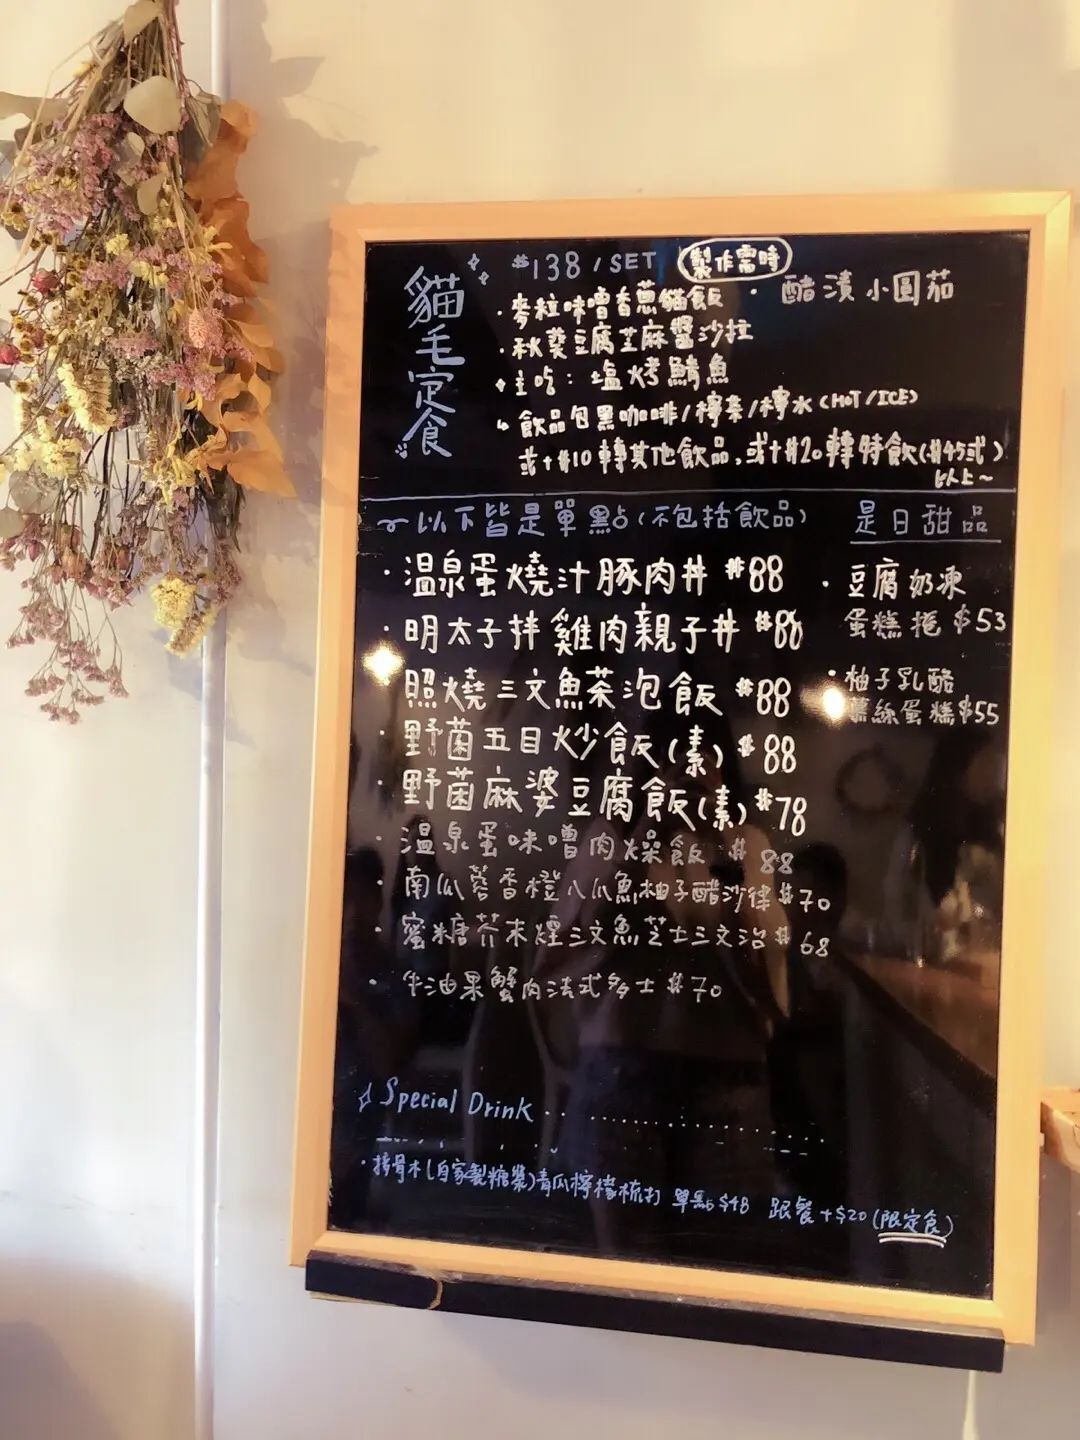 貓毛定食
$138/SET 製作需時
・麥粒味噌香蔥貓飯 ・醋漬小圓茄
・秋葵豆腐芝麻醬沙拉
主吃：塩烤鯖魚
飲品包黑咖啡/檸茶/檸水(HOT/ICE)
或+$10轉其他飲品,或+$20轉特飲($45或
以上~
以下皆是單點(不包括飲品)
・溫泉蛋燒汁豚肉丼 $88
・明太子拌雞肉親子丼 $88
照燒三文魚茶泡飯 $88
・野菌五目炒飯(素) $88
・野菌麻婆豆腐飯(素) $78
・溫泉蛋味噌肉燥飯 $88
・南瓜蓉香橙八爪魚柚子醋沙律 $70
・蜜糖芥末煙三文魚芝士三文治 $68
・牛油果蟹肉法式多士 $70
是日甜品
・豆腐奶凍
蛋糕 $53
・柚子乳酪
慕絲蛋糕$55
Special Drink
・接骨木(自家製糖漿)青瓜檸檬梳打 單點$48 跟餐+$20(限定食)